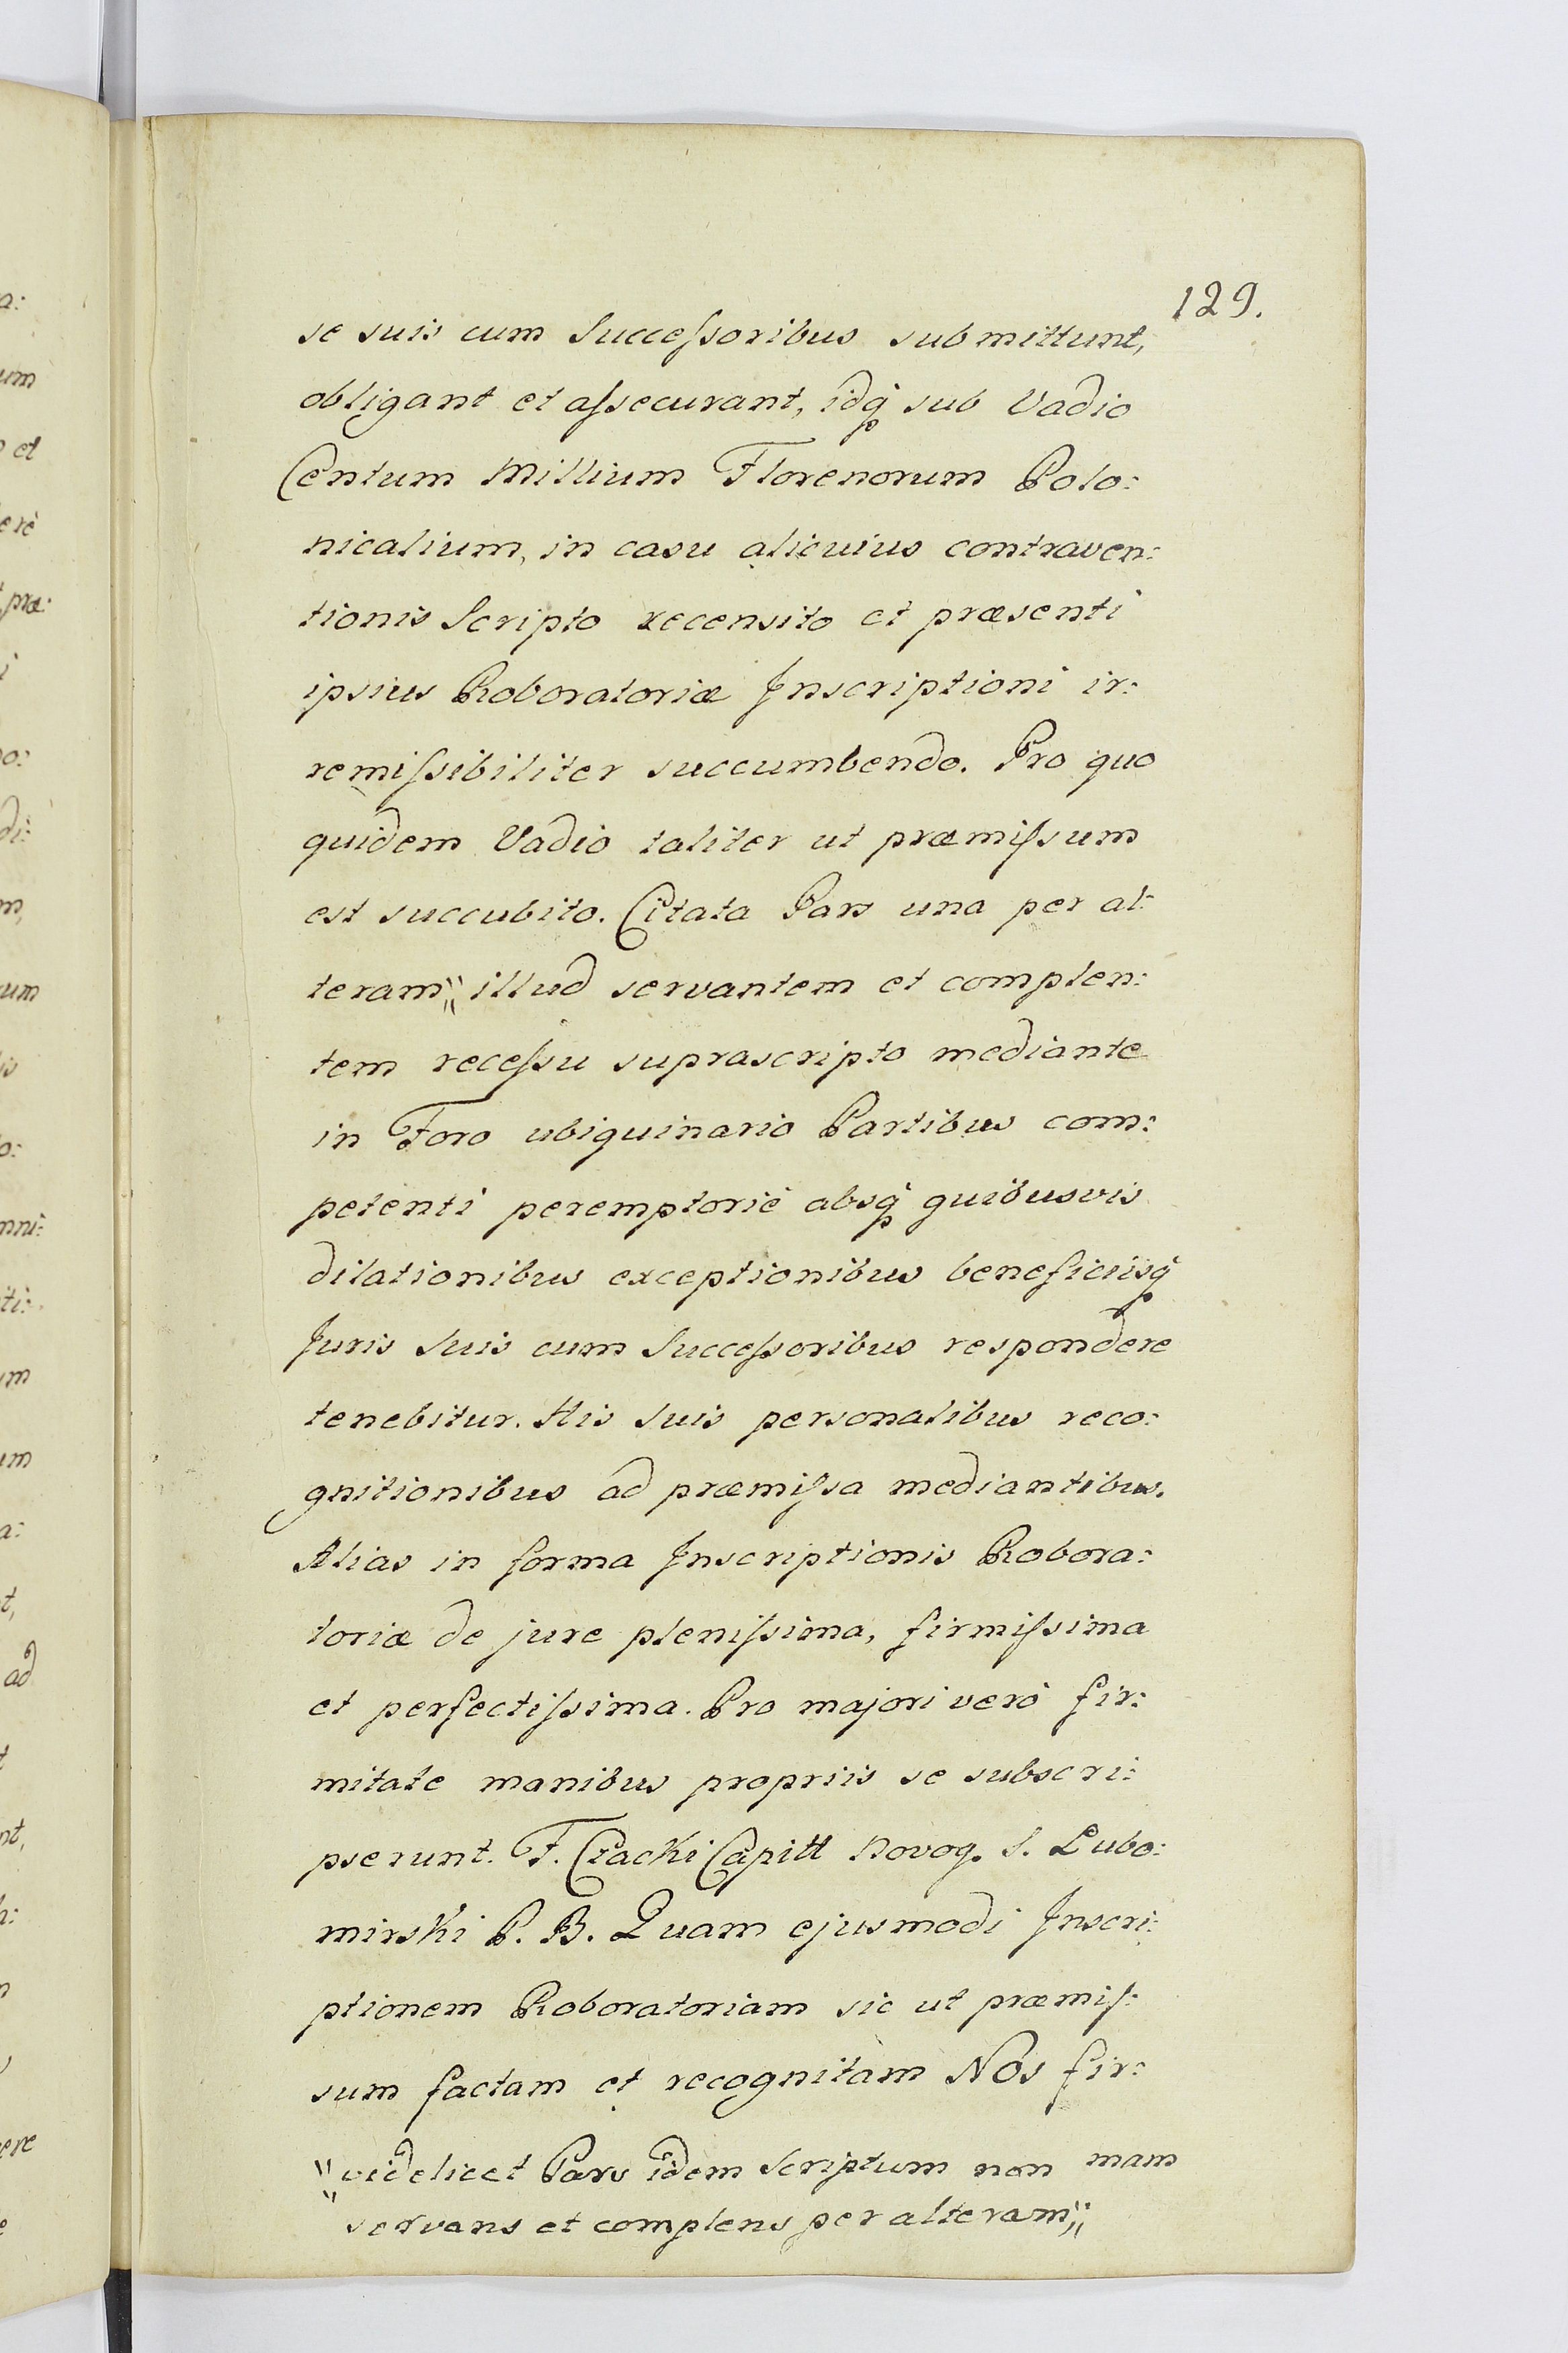 129.
se suis cum Succeſsoribus submittunt,
obligant et aſsecurant, idq́ sub Vadio
Centum Millium Florenorum Polo:
nicalium, in casu alicuius contraven:
tionis Scripto recensito et præsenti
ipsius Roboratoriæ Inscriptioni ir:
remiſsibiliter succumbendo. Pro quo
quidem Vadio taliter ut præmiſsum
est succubito. Citata Pars una per al:
teram〃 illud servantem et complen:
tem receſsu suprascripto mediante
in Foro ubiquinario Partibus com:
petenti peremptoriè absq́ quibusvis
dilationibus exceptionibus beneficiisq́
Juris Suis cum Succeſsoribus respondere
tenebitur. His Suis personalibus reco:
gnitionibus ad præmiſsa mediantibus.
Alias in forma Inscriptionis Robora:
toriæ de jure pleniſsima, firmiſsima
et perfectiſsima. Pro majori verò fir:
mitate manibus propriis se subscri:
pserunt. F. Czacki Capitt Novog. S. Lubo:
mirski P. B. Quam ejusmodi Inscri:
ptionem Roboratoriam sic ut præmiſ:
sum factam et recognitam Nos fir:
mam
〃videlicet Pars idem Scriptum non
servans et complens per alteram〃